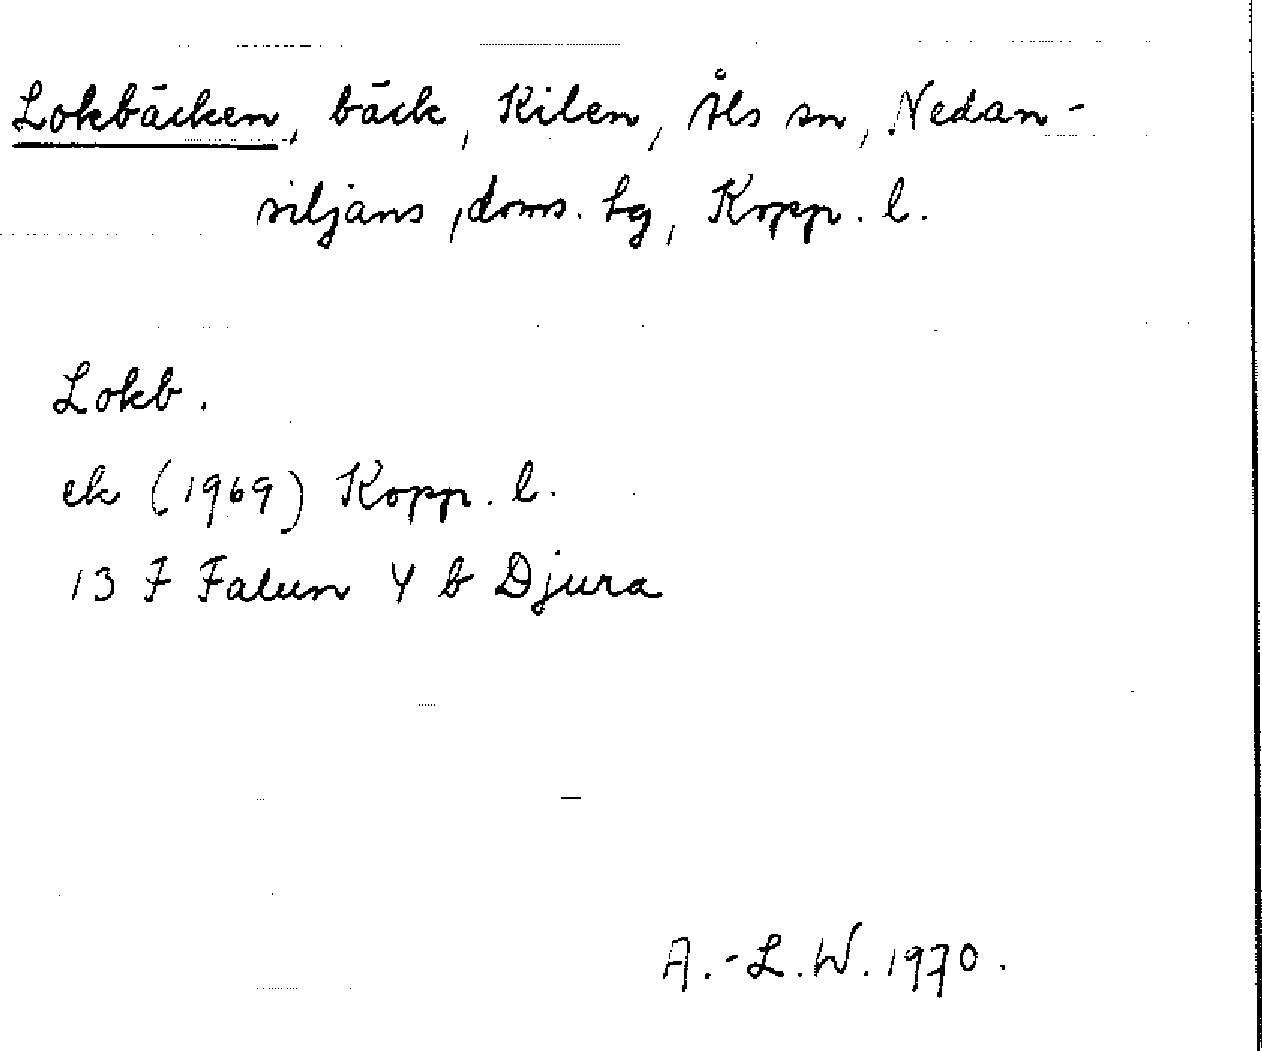 Lokbäcken, bäck, Kilen, Åls sn, Nedan-
siljans, doms. hg, Kopp. l.
Lokb.
ek (1969) Kopp. l.
13 F Falun 4 b Djura
A.-L. W. 1970.